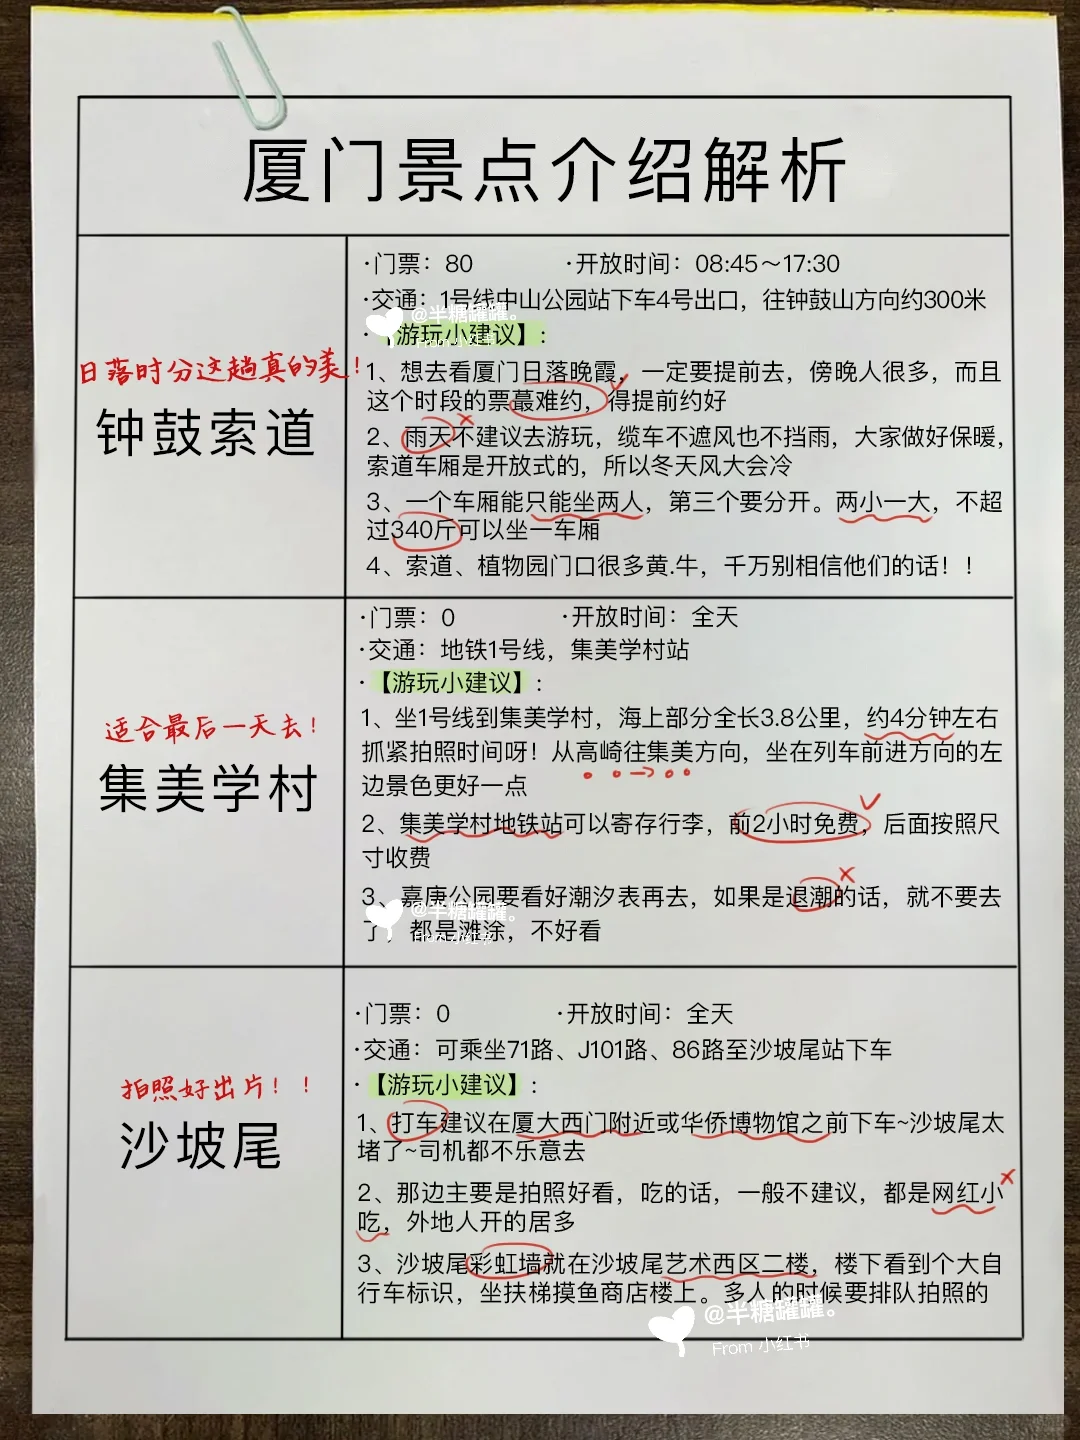 厦门景点介绍解析
日落时分这趟真的美！
钟鼓索道
·门票：80 ·开放时间：08:45～17:30
·交通：1号线中山公园站下车4号出口，往钟鼓山方向约300米
·【游玩小建议】：
1、想去看厦门日落晚霞，一定要提前去，傍晚人很多，而且
这个时段的票蕞难约，得提前约好
2、雨天不建议去游玩，缆车不遮风也不挡雨，大家做好保暖，
索道车厢是开放式的，所以冬天风大会冷
3、一个车厢能只能坐两人，第三个要分开。两小一大，不超
过340斤可以坐一车厢
4、索道、植物园门口很多黄.牛，千万别相信他们的话！！
适合最后一天去！
集美学村
·门票：0 ·开放时间：全天
·交通：地铁1号线，集美学村站
·【游玩小建议】：
1、坐1号线到集美学村，海上部分全长3.8公里，约4分钟左右
抓紧拍照时间呀！从高崎往集美方向，坐在列车前进方向的左
边景色更好一点
2、集美学村地铁站可以寄存行李，前2小时免费，后面按照尺
寸收费
3、嘉庚公园要看好潮汐表再去，如果是退潮的话，就不要去
了，都是滩涂，不好看
拍照好出片！！
沙坡尾
·门票：0 ·开放时间：全天
·交通：可乘坐71路、J101路、86路至沙坡尾站下车
·【游玩小建议】：
1、打车建议在厦大西门附近或华侨博物馆之前下车~沙坡尾太
堵了~司机都不乐意去
2、那边主要是拍照好看，吃的话，一般不建议，都是网红小
吃，外地人开的居多
3、沙坡尾彩虹墙就在沙坡尾艺术西区二楼，楼下看到个大自
行车标识，坐扶梯摸鱼商店楼上。多人的时候要排队拍照的
@半糖罐罐。
From 小红书
@半糖罐罐。
From 小红书
@半糖罐罐。
From 小红书